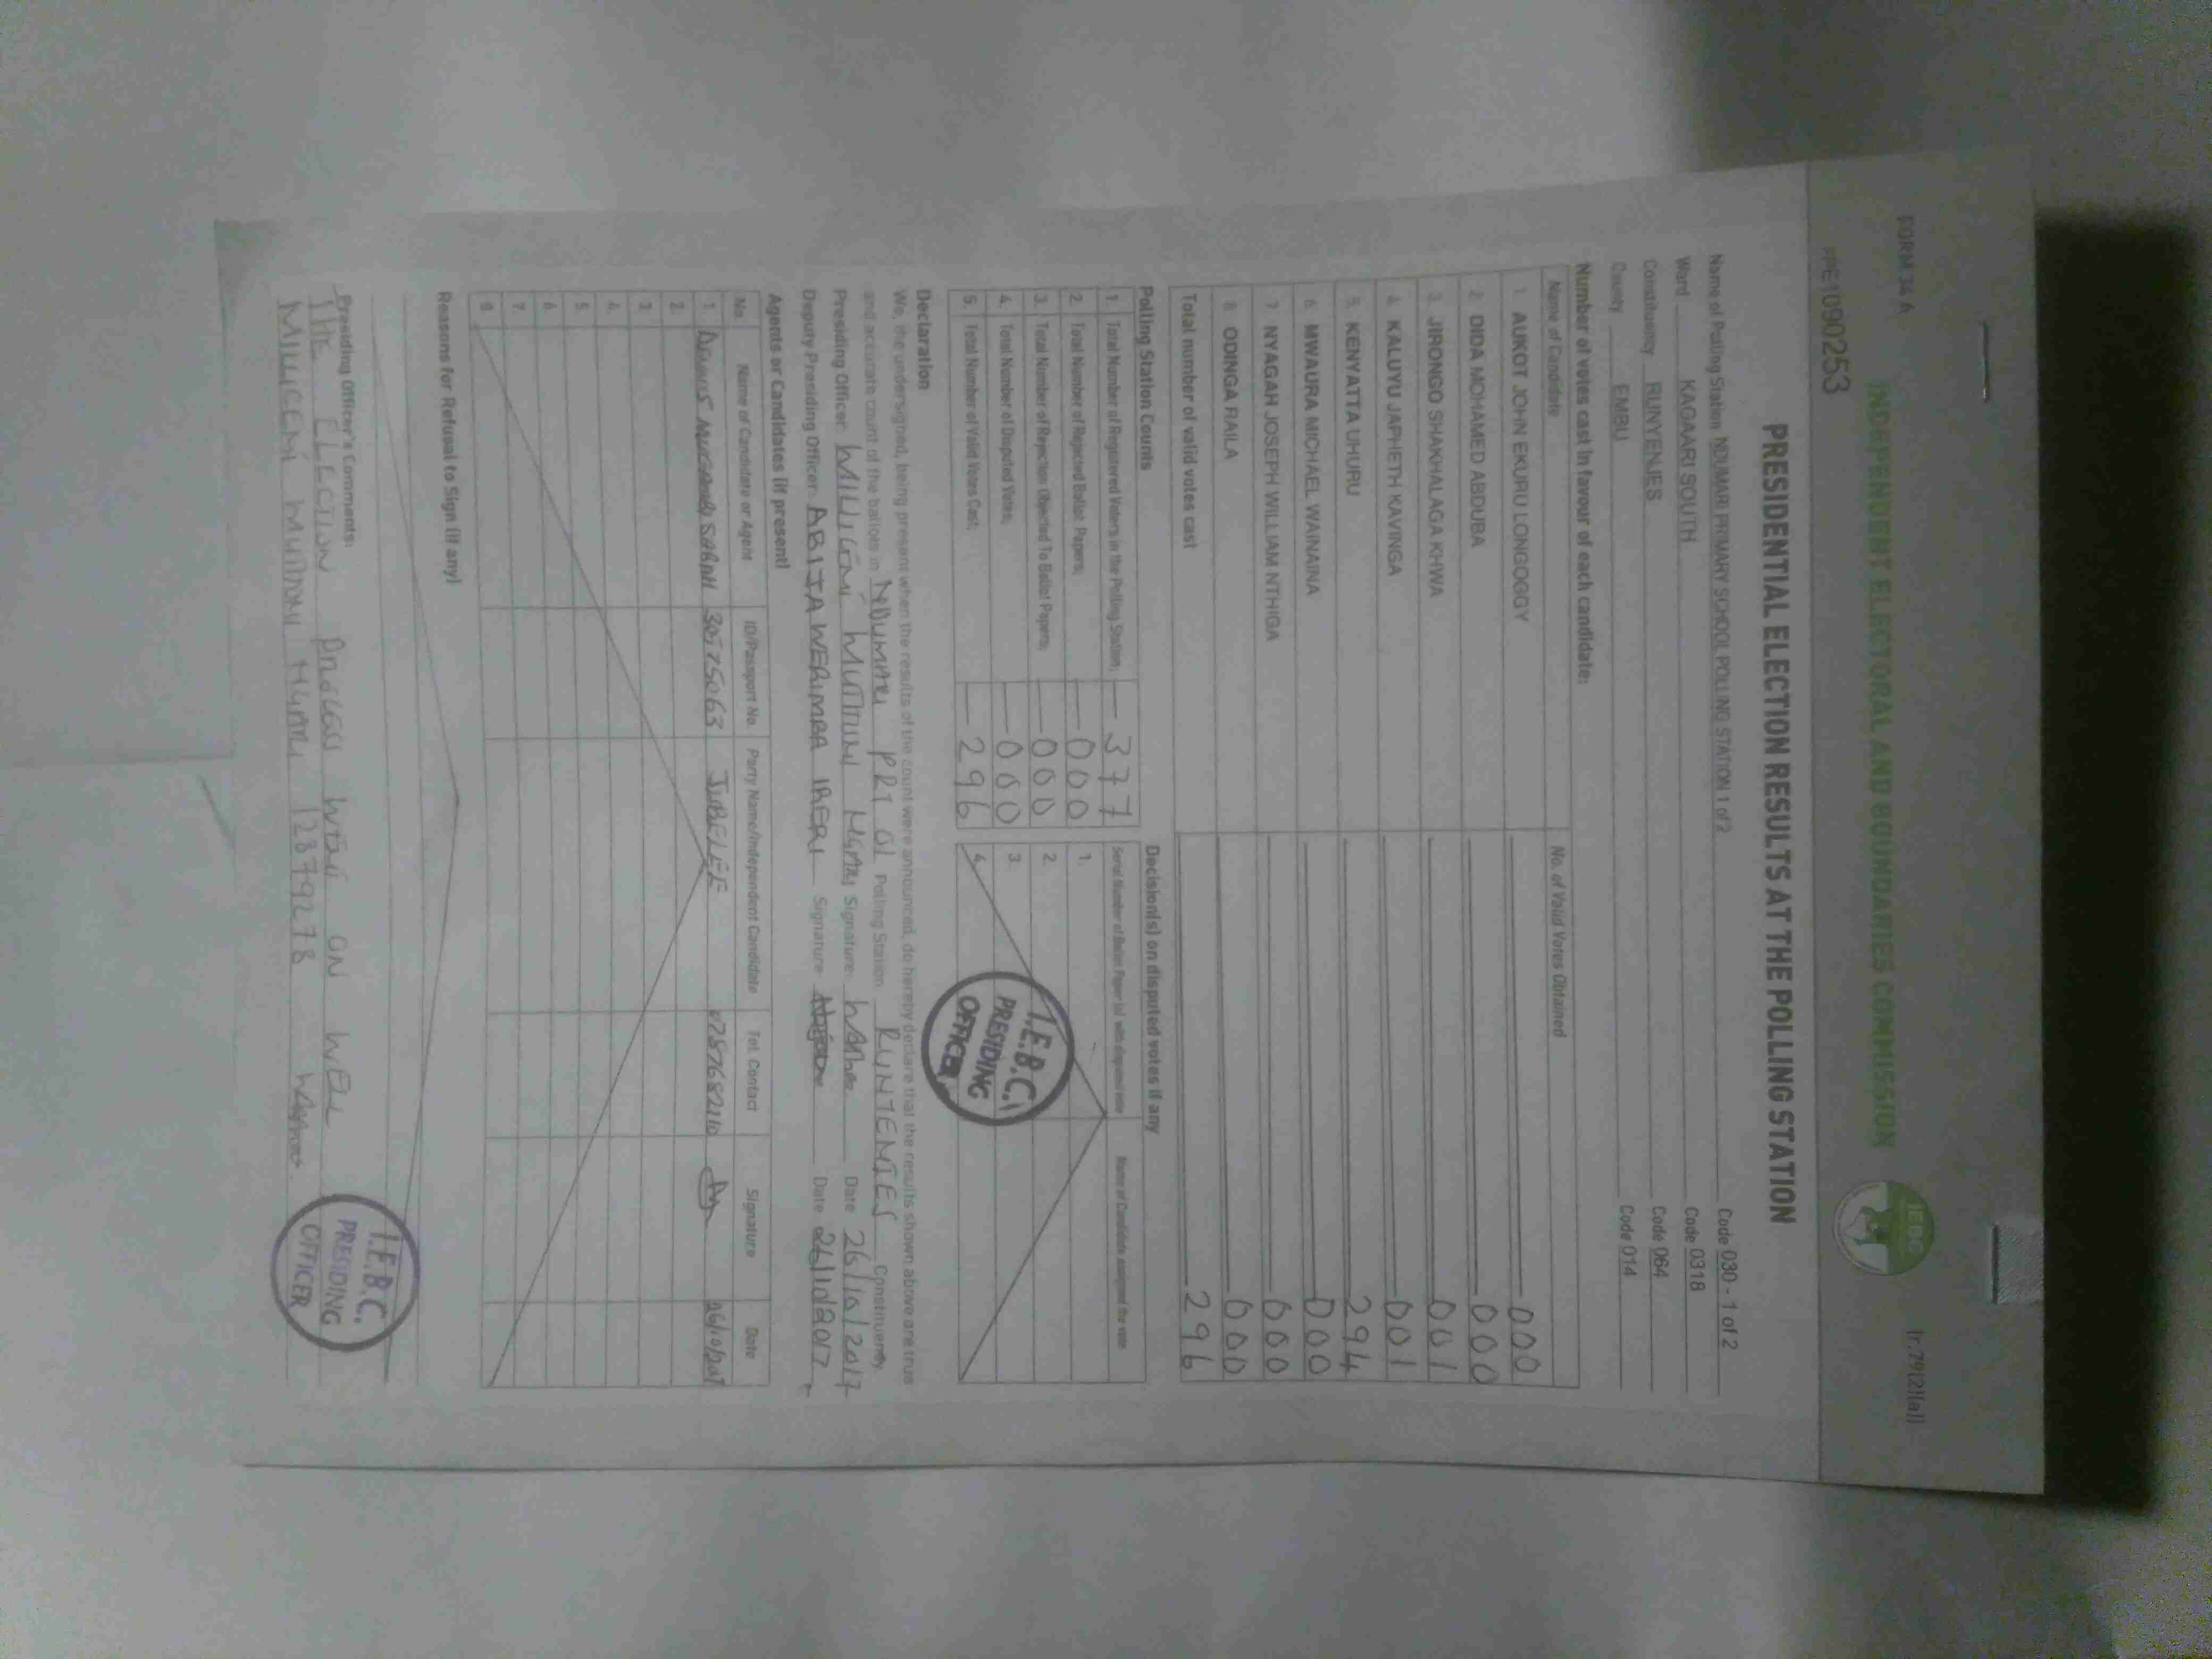 FORM 34 A
INDEPENDENT ELECTORAL AND BOUNDARIES COMMISSION
IEBC
(r.79(2)(a))
PRE1090253
PRESIDENTIAL ELECTION RESULTS AT THE POLLING STATION
Name of Polling Station NDUMARI PRIMARY SCHOOL POLLING STATION 1 of 2 Code 030 - 1 of 2
Ward KAGAARI SOUTH Code 0318
Constituency RUNYENJES Code 064
County EMBU Code 014
Number of votes cast in favour of each candidate:
Name of Candidate No. of Valid Votes Obtained
1. AUKOT JOHN EKURU LONGOGGY 000
2. DIDA MOHAMED ABDUBA 000
3. JIRONGO SHAKHALAGA KHWA 001
4. KALUYU JAPHETH KAVINGA 001
5. KENYATTA UHURU 294
6. MWAURA MICHAEL WAINAINA 000
7. NYAGAH JOSEPH WILLIAM NTHIGA 000
8. ODINGA RAILA 000
Total number of valid votes cast 296
Polling Station Counts
1. Total Number of Registered Voters in the Polling Station; 377
2. Total Number of Rejected Ballot Papers; 000
3. Total Number of Rejection Objected To Ballot Papers; 000
4. Total Number of Disputed Votes; 000
5. Total Number of Valid Votes Cast; 296
Decision(s) on disputed votes if any
Serial Number of Ballot Paper (s) with disputed vote Name of Candidate assigned the vote
1.
2.
3.
4.
I.E.B.C.
PRESIDING
OFFICER
Declaration
We, the undersigned, being present when the results of the count were announced, do hereby declare that the results shown above are true
and accurate count of the ballots in NDUMARI PRI 01 Polling Station RUNYENJES Constituency.
Presiding Officer: MILLICENT Signature: Date 26/10/2017
Deputy Presiding Officer: ABIJA WERIMBA IRERI Signature Date 26/10/2017
Agents or Candidates (if present)
No. Name of Candidate or Agent ID/Passport No. Party Name/Independent Candidate Tel. Contact Signature Date
1. SARAH 30775063 JUBELEE 0787682110 26/10/2017
2.
3.
4.
5.
6.
7.
8.
Reasons for Refusal to Sign (if any)
Presiding Officer's Comments:
THE ELECTION PROCESS WENT ON WELL
12879278
I.E.B.C.
PRESIDING
OFFICER